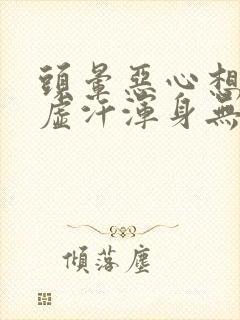 頭暈惡心想
虛汗渾身無
傾落塵